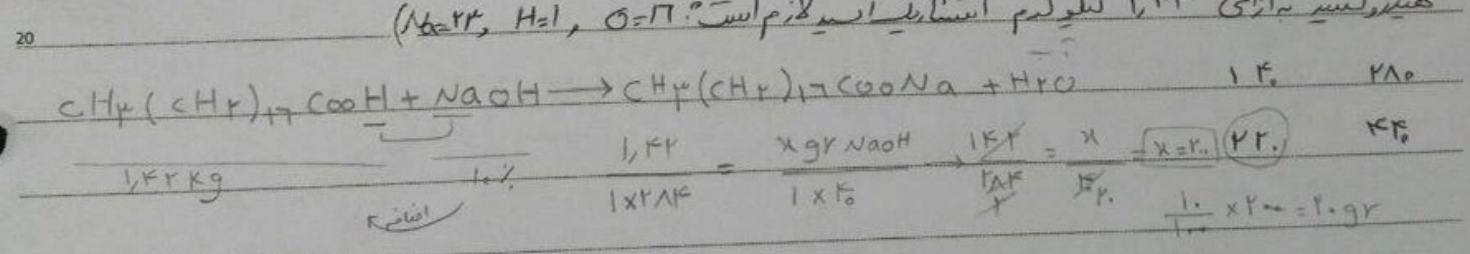 20
برای ۱٫۴۲ کیلوگرم استئاریک اسید لازم است؟ (Na=۲۳, H=۱, O=۱۶
CH۳(CH۲)۱۶COOH + NaOH ⟶ CH۳(CH۲)۱۶COONa + H۲O ۱۴۰ ۲۸۰
۱,۴۲ kg ۱۰٪ ۱,۴۲ / ۱×۲۸۴ = x gr NaOH / ۱×۴۰ → ۱۴۲ / ۲۸۴ ۲ = x / ۴۰ ۲۰ x=۲۰۰ ۲۲۰ ۴۴۰
اضافی ۱۰ / ۱۰۰ ×۲۰۰=۲۰gr